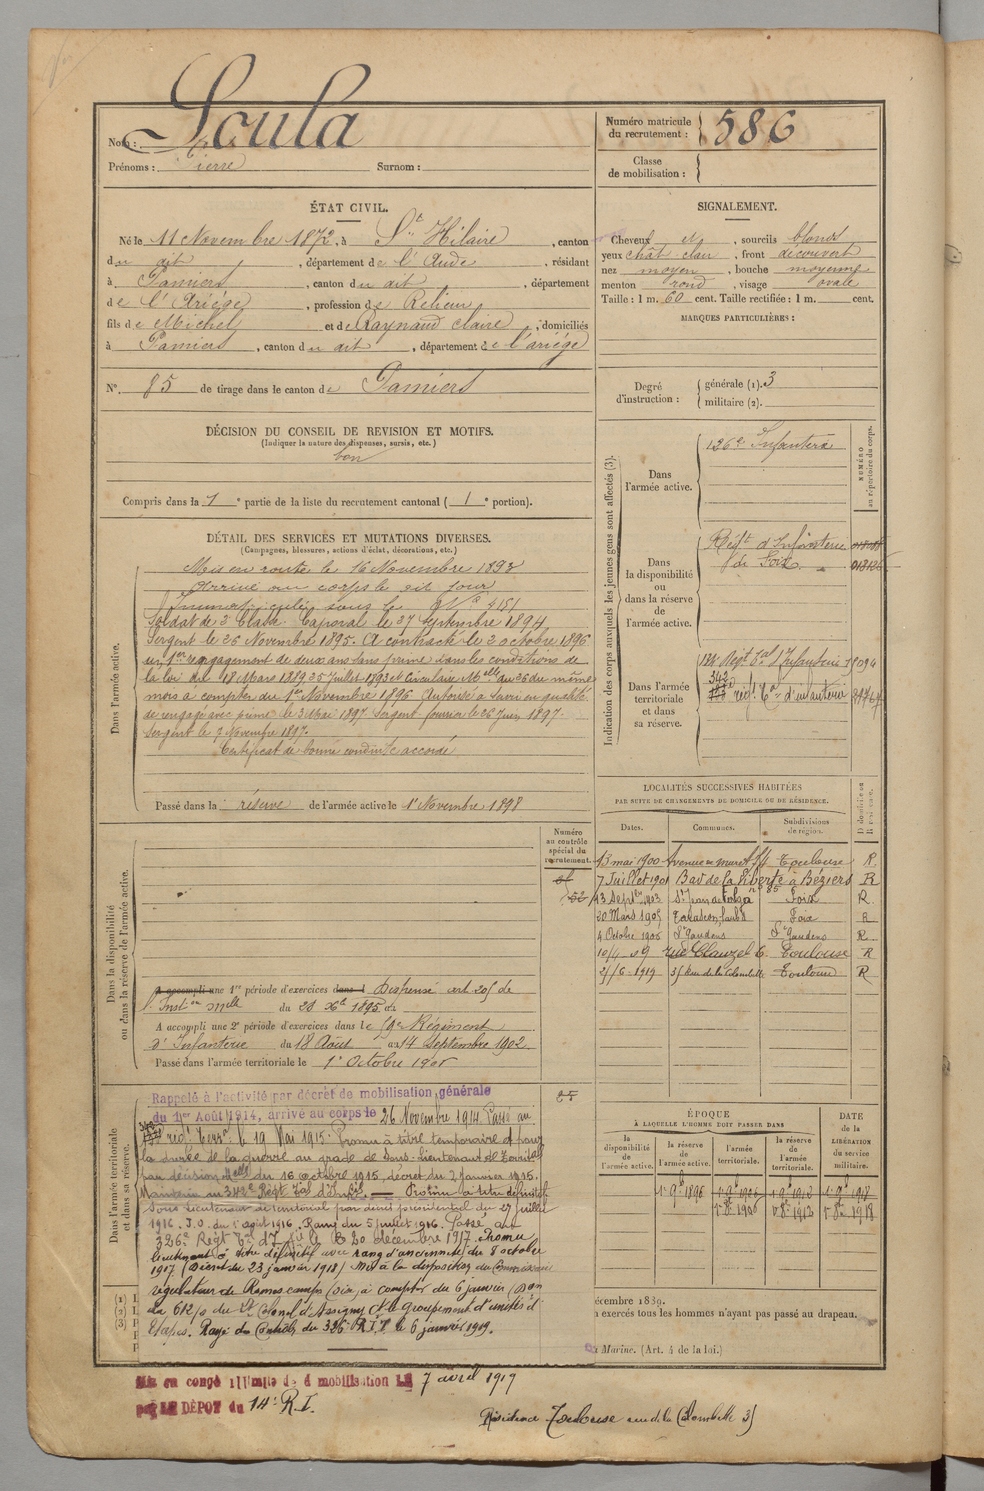 Nom : Scula
Numéro matricule du recrutement : 586
Prénoms : Pierre Surnom :
Classe de mobilisation :
ÉTAT CIVIL.
Né le 11 Novembre 1872, à St Hilaire, canton
du dit, département de l'Aude, résidant
à Pamiers, canton du dit, département
de l'Ariège, profession de Relieur,
fils de Michel et de Raynaud Claire, domiciliés
à Pamiers, canton du dit, département de l'ariège
N° 85 de tirage dans le canton de Pamiers
SIGNALEMENT.
Cheveux et, sourcils blonds
yeux chât. clair, front découvert
nez moyen, bouche moyenne
menton rond, visage ovale
Taille : 1 m. 60 cent. Taille rectifiée : 1 m. cent.
MARQUES PARTICULIÈRES :
Degré d'instruction : générale (1). 3
militaire (2).
DÉCISION DU CONSEIL DE REVISION ET MOTIFS.
(Indiquer la nature des dispenses, sursis, etc.)
bon
Compris dans la 1e partie de la liste du recrutement cantonal (1e portion).
DÉTAIL DES SERVICES ET MUTATIONS DIVERSES.
(Campagnes, blessures, actions d'éclat, décorations, etc.)
Dans l'armée active.
Mis en route le 16 Novembre 1893
Arrivé au corps le dit jour
Immatriculé sous le N° 4151
Soldat de 2e Classe Caporal le 27 septembre 1894
Sergent le 26 Novembre 1895. A contracté le 2 octobre 1896
un 1er rengagement de deux ans sans prime dans les conditions de
la loi du 18 Mars 1889 25 Juillet 1893 et Circulaire Mlle du 26 du même
mois à compter du 1er Novembre 1896 Autorisé à servir en qualité
de rengagé avec prime le 3 Mai 1897 Sergent fourrier le 26 Juin 1897.
Sergent le 7 Novembre 1897.
Certificat de bonne conduite accordé
Passé dans la réserve de l'armée active le 1er Novembre 1898
Indication des corps auxquels les jeunes gens sont affectés (3).
NUMÉRO au répertoire du corps.
Dans l'armée active.
126e Infanterie
Dans la disponibilité ou dans la réserve de l'armée active.
Régt d'Infanterie
de Foix
Dans l'armée territoriale et dans sa réserve.
Régt Tal d'Infanterie
342 régt Tal d'infanterie
LOCALITÉS SUCCESSIVES HABITÉES
PAR SUITE DE CHANGEMENTS DE DOMICILE OU DE RÉSIDENCE.
Dates. Communes. Subdivisions de région. D domicile ou R résidence.
13 mai 1900 Avenue de muret 54 Toulouse R.
7 Juillet 1901 Bd de la Liberté à Béziers R
13 Septbre 1903 St Jean Foix R
20 Mars 1905 Tarascon Foix R
4 Octobre 1906 St Gaudens St Gaudens R
10/4 09 rue Clauzel 6. Toulouse R
25/6-1919 31 rue de la Colombette Toulouse R
Numéro au contrôle spécial du recrutement.
Dans la disponibilité ou dans la réserve de l'armée active.
A accompli une 1re période d'exercices dans l Dispensé art 205 de
l'Instion Mlle du 28 Xbre 1895
A accompli une 2e période d'exercices dans le 59e Régiment
d'Infanterie du 18 Août au 14 Septembre 1902.
Passé dans l'armée territoriale le 1er Octobre 1906
Dans l'armée territoriale et dans sa réserve.
Rappelé à l'activité par décret de mobilisation générale
du 1er Août 1914, arrivé au corps le 26 Novembre 1914 Passé au
régt Terral le 19 Mai 1915. Promu à titre temporaire et pour
la durée de la guerre au grade de Sous-lieutenant de Territale
par décision Mlle du 16 octobre 1915, décret du 2 Janvier 1915.
Maintenu au 342e Régt Tal d'Infie — Promu à titre définitif
Sous lieutenant de territorial par décret présidentiel du 27 juillet
1916. J.O. du 1er août 1916. Rang du 5 juillet 1916. Passé au
326e Régt Tal d'Ife le 20 décembre 1917. Promu
lieutenant à titre définitif avec rang d'ancienneté du 8 octobre
1917 (Décret du 23 janvier 1918) Mis à la disposition du Commissaire
régulateur de Romescamps (Oise) à compter du 6 janvier (Bon
du 612/2 du Lt Colonel d'Assigny Ct le groupement d'unités d'
Etapes. Rayé des Contrôles du 326e R.I.T. le 6 janvier 1919.
25
ÉPOQUE
À LAQUELLE L'HOMME DOIT PASSER DANS
la disponibilité de l'armée active.
la réserve de l'armée active.
l'armée territoriale.
la réserve de l'armée territoriale.
DATE de la LIBÉRATION du service militaire.
1er 9bre 1896
1er 8bre 1906
1er 8bre 1918
(1)
(2)
(3)
écembre 1889.
à exercés tous les hommes n'ayant pas passé au drapeau.
Marine. (Art. 4 de la loi.)
Mis en congé illimité de démobilisation LE 7 avril 1919
par LE DÉPOT du 14e R.I.
Résidence Toulouse rue de la Colombette 31